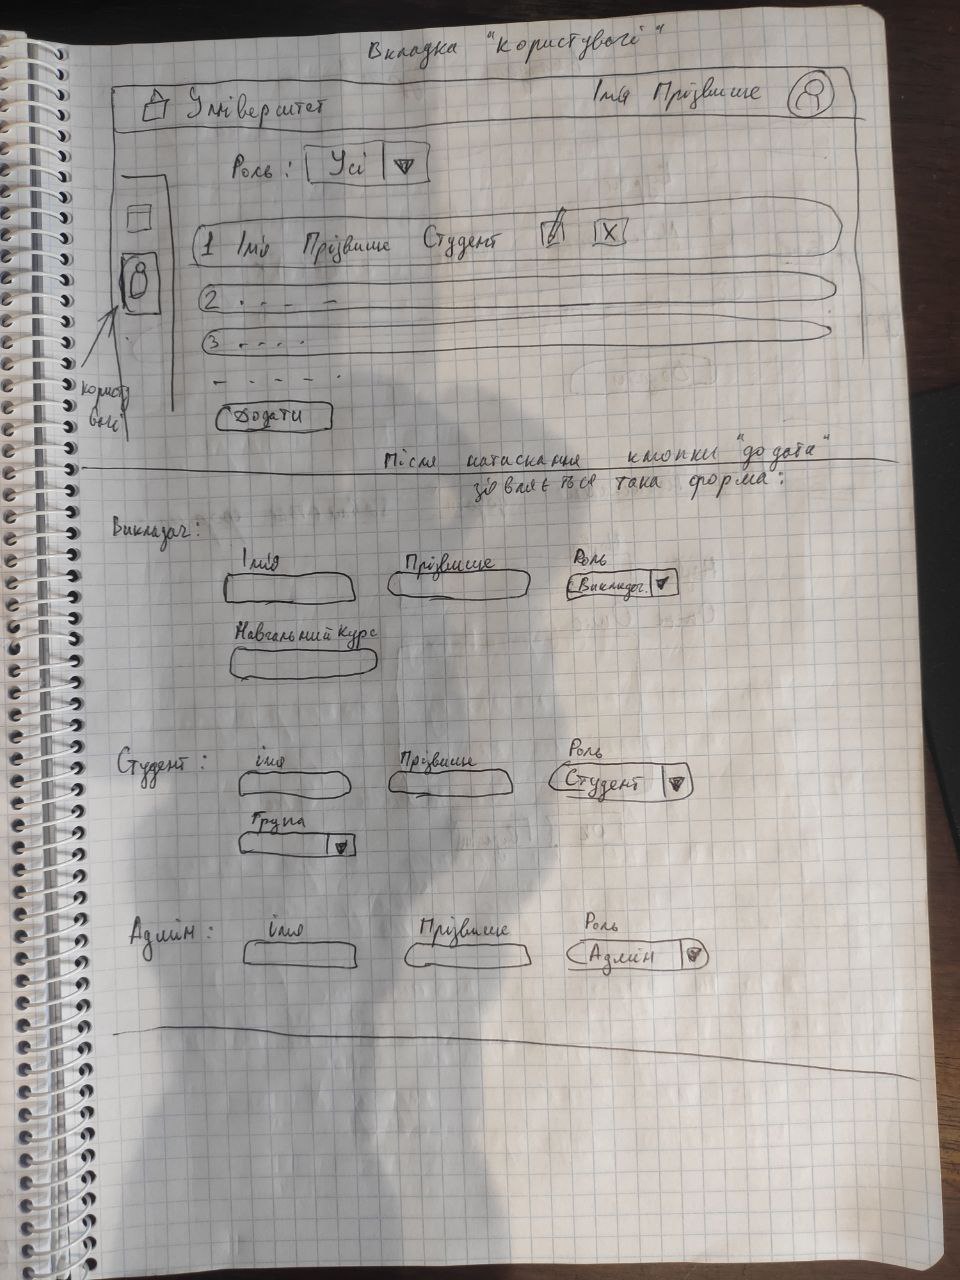 Вкладка "Користувачі"
Університет
Імя Прізвище
Роль: Усі
1 Імя Прізвище Студент X
2 . - - -
3 - - - .
- - - - .
Користувачі
Додати
Після натискання кнопки "додати"
зівляється така форма:
Викладач:
Імя Прізвище Роль
Викладач.
Навчальний курс
Студент: імя Прізвище Роль
Студент
Група
Адмін: імя Прізвище Роль
Адмін